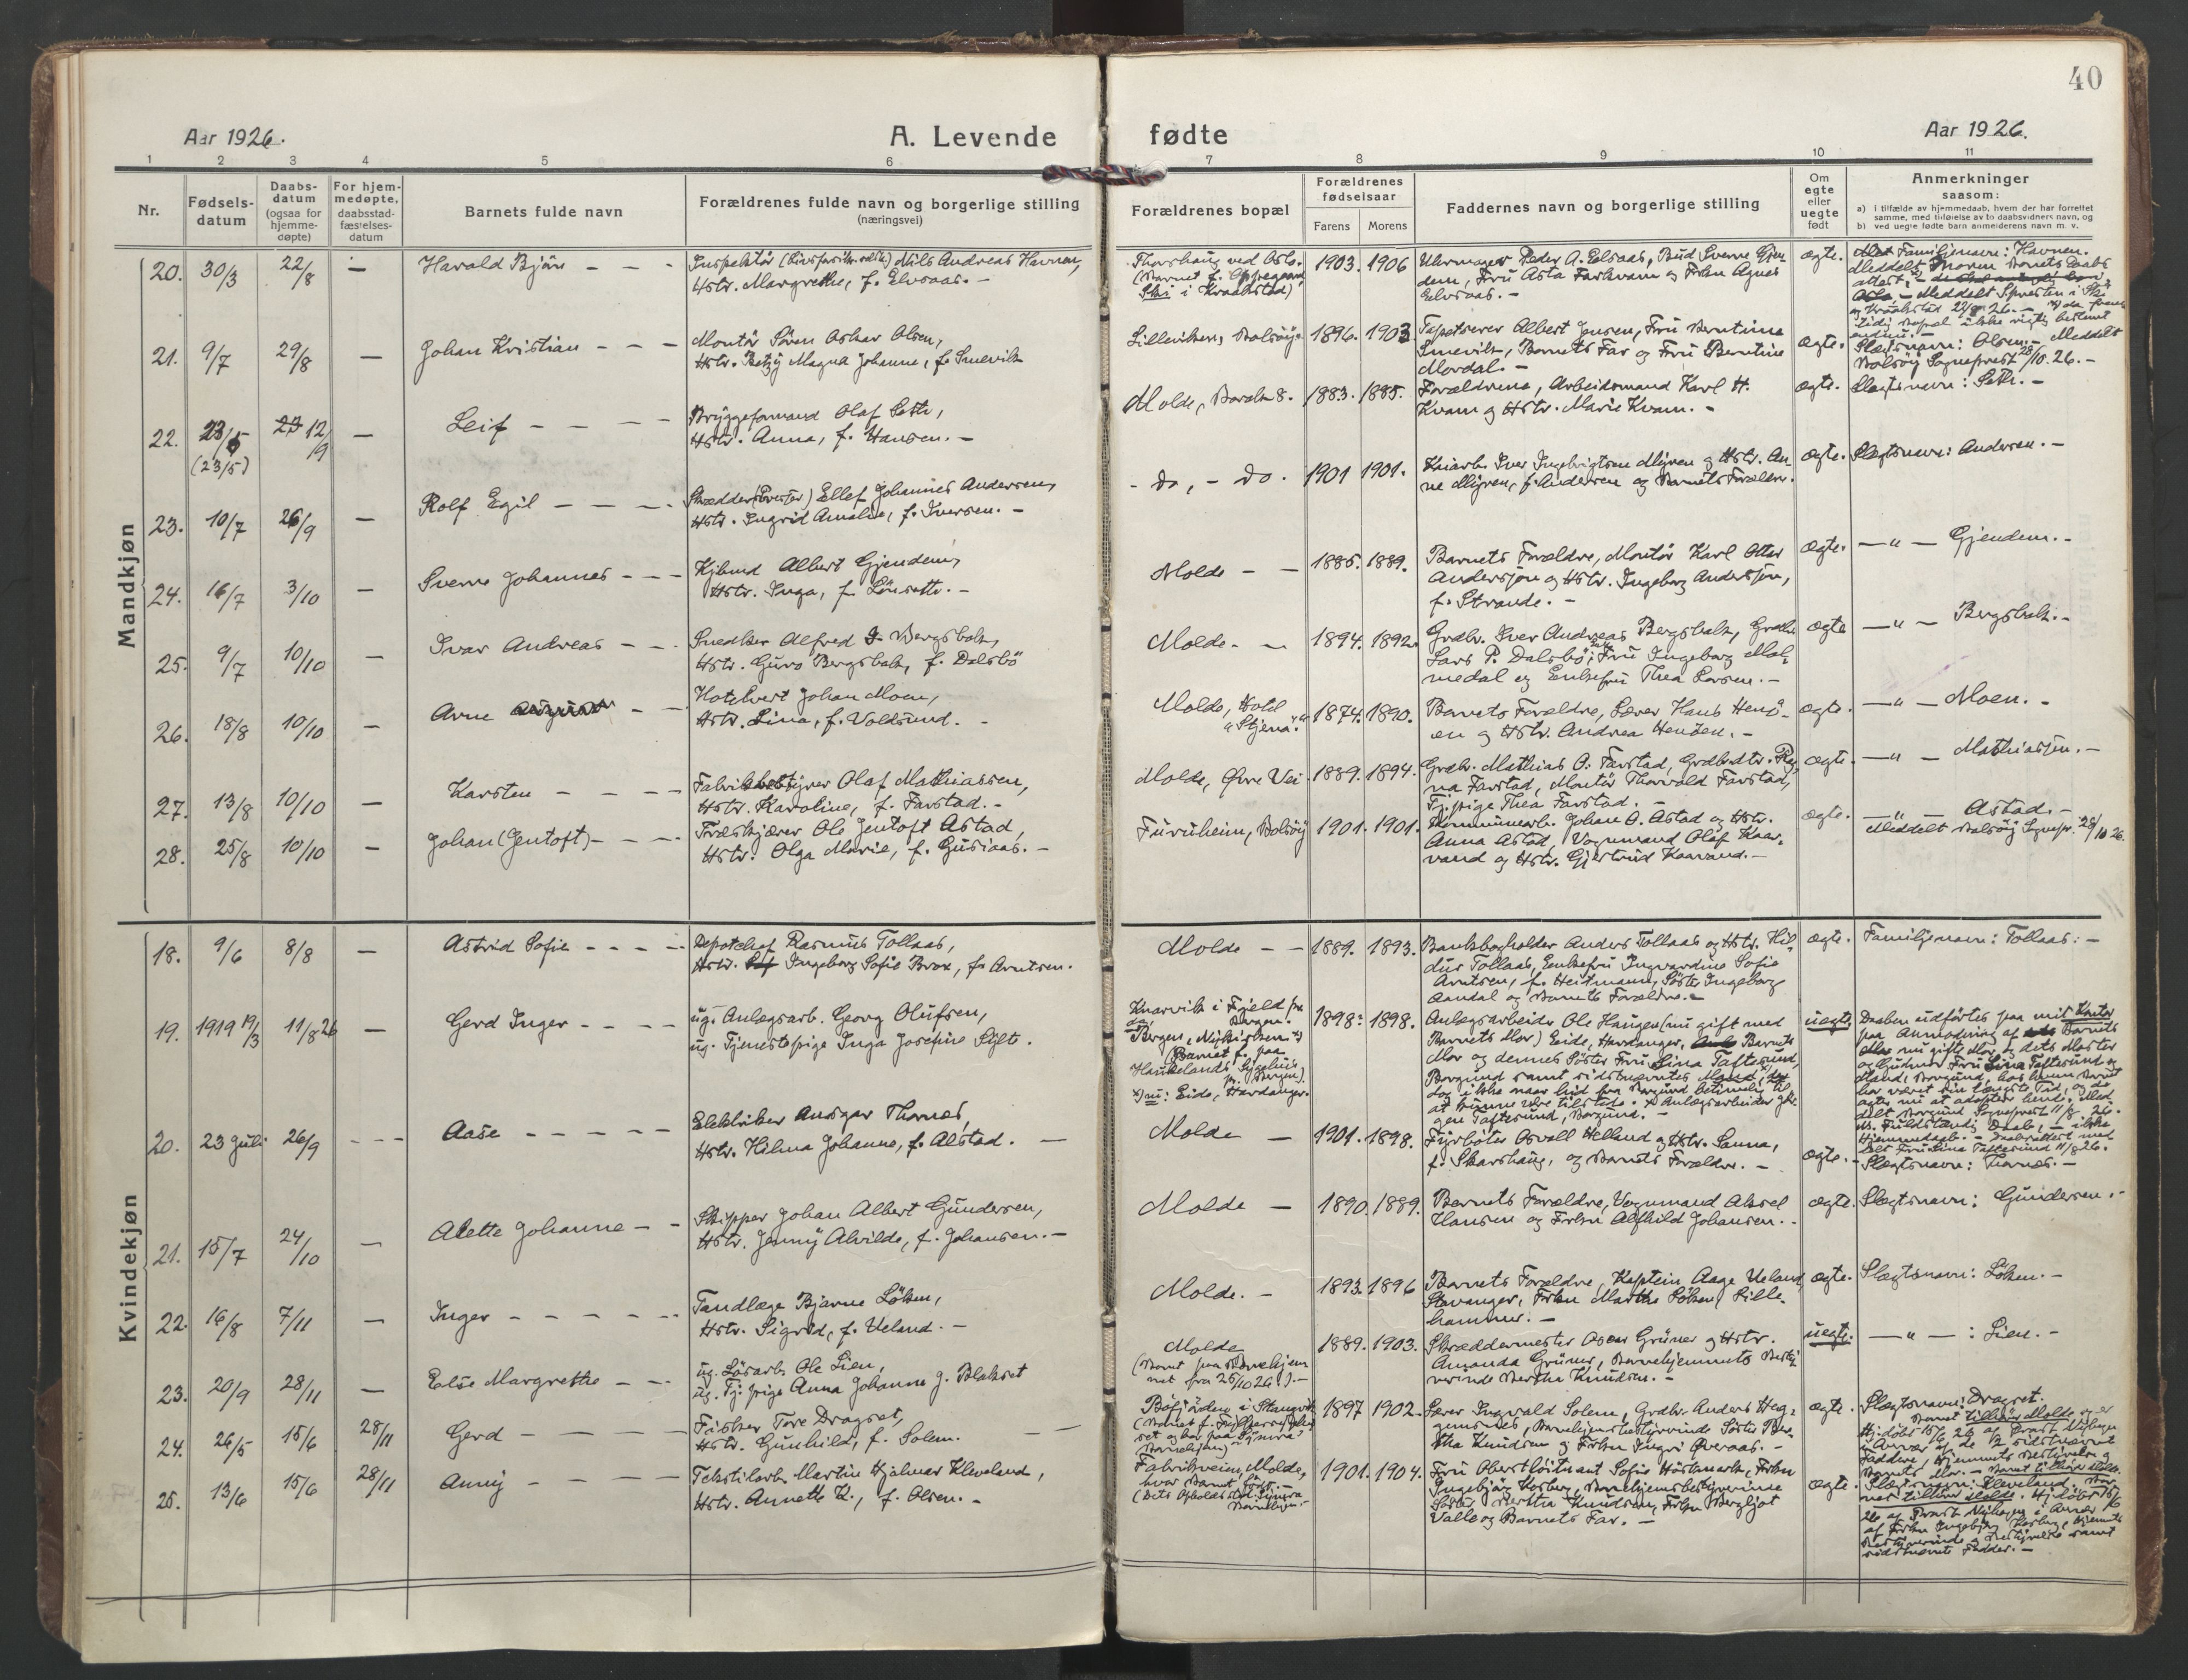 40
Aar 1926.
A. Levende
fødte
Aar 1926.
1 2 3 4 5 6 7 8 9 10 11
Nr.
Fødsels-
datum
Daabs-
datum
(ogsaa for
hjemme-
døpte)
For hjem-
medøpte,
daabsstad-
fæstelses-
datum
Barnets fulde navn
Forældrenes fulde navn og borgerlige stilling
(næringsvei)
Forældrenes bopæl
Forældrenes
fødselsaar
Farens Morens
Faddernes navn og borgerlige stilling
Om
egte
eller
uegte
født
Anmerkninger
saasom:
a) i tilfælde av hjemmedaab, hvem der har forrettet
samme, med tilføielse av to daabsvidners navn, og
b) ved uegte fødte barn anmelderens navn m. v.
Mandkjøn
20. 30/3 22/8 — Harald Bjön — — —
Inspektör Nils Andreas Havnen,
Hstr. Margrethe, f. Elvsaas. —
Thorshaug ved Oslo.
Ski i Kraakstad)
1903. 1906
Uhrmager Peder A. Elvsaas, Bud Sverre Gjen-
dem, Fru Asta Farkvam og Frkn Agnes
Elvsaas. —
ægte.
Familjenavn: Havnen.
21. 9/7 29/8 — Johan Kristian — — —
Montör Sören Oskar Olsen,
Hstr. Betzy Magna Johanne, f. Smevik
Lillevikens, Bolsöy.
1896. 1903
Tapetserer Albert Jensen, Fru Berntine
Smevik, Barnets Far og Fru Berntine
Mordal. —
ægte.
Slægtsnavn: Olsen. — Meddelt
Bolsöy Sogneprest 28/10. 26. —
22. 23/5 (23/5) 12/9 — Leif — — —
Bryggeformand Olaf Seth,
Hstr. Anna, f. Hansen. —
Molde, Barak 8.
1883. 1885.
Forældrene, Arbeidsmand Karl H.
Kvam og Hstr. Marie Kvam. —
ægte.
Slægtsnavn: Seth. —
23. 10/7 26/9 — Rolf Egil — — —
Skrædder Ellef Johannes Andersen,
Hstr. Ingrid Amalie, f. Iversen. —
- do, - do.
1901 1901.
Kaiarb. Iver Ingebrigtsen Myren og Hstr. An-
ne Myren, f. Andersen og Barnets Forældre.
ægte.
Slægtsnavn: Andersen. —
24. 16/7 3/10 — Sverre Johannes — — —
Kjbmd Albert Gjendem,
Hstr. Inga, f. Lönseth. —
Molde — —
1885. 1889.
Barnets Forældre, Montör Karl Ottar
Andersson og Hstr. Ingeborg Andersson,
f. Strande. —
ægte.
— „ — Gjendem. —
25. 9/7 10/10 — Ivar Andreas — — —
Snedker Alfred Bergsbak,
Hstr. Guro Bergsbak, f. Dalsbö
Molde. —
1894. 1892.
Grdbr. Iver Andreas Bergsbak, Grdbr.
Lars P. Dalsbö, Fru Ingeborg Mal-
medal og Enkefru Thea Larsen. —
ægte
— „ — Bergsbak. —
26. 18/8 10/10 — Arne — —
Hotelvert Johan Moen,
Hstr. Lina, f. Voldsund. —
Molde, Hotel
„Stjerna".
1874. 1890.
Barnets Forældre, Lærer Hans Henö-
en og Hstr. Andrea Henöen. —
ægte.
— „ — Moen. —
27. 13/8 10/10 — Karsten — — —
Fabrikbestyrer Olaf Mathiassen,
Hstr. Karoline, f. Farstad. —
Molde, Øvre Vei
1889. 1894.
Grdbr. Mathias O. Farstad, Grdbrdtr. Rag-
na Farstad, Montör Thorvald Farstad,
Tj.pige Thea Farstad. —
ægte.
— „ — Mathiassen. —
28. 25/8 10/10 — Johan (Gentoft) — — —
Træskjærer Ole Jentoft Astad,
Hstr. Olga Marie, f. Gusiaas. —
Furuheim, Bolsöy
1901. 1901.
Kommunearb. Johan O. Astad og Hstr.
Anna Astad, Vognmand Olaf Kaar-
vand og Hstr. Gjertrud Kaarvand. —
ægte.
— „ — Astad. —
Meddelt Bolsöy Sognepr. 28/10 26.
Kvindekjøn
18. 9/6 8/8 — Astrid Sofie — — —
Depotchef Rasmus Tollaas,
Hstr. Ingeborg Sofie Brox, f. Arntsen.
Molde — —
1889. 1893.
Bankbogholder Anders Tollaas og Hstr. Hil-
dur Tollaas, Enkefru Ingvardine Sofie
Arntsen, f. Heitmann, Söster Ingeborg
Aandal og Barnets Forældre. —
ægte.
Familjenavn: Tollaas: —
19. 1919 19/3 11/8 26 — Gerd Inger — — —
ug. Anlægsarb. Georg Olufsen,
ug. Tjenestepige Inga Josefine Sylte.
Knarvik i Fjeld
Bergen, Nykirken.
Barnet f. paa
Haukelands Sygehus,
Bergen).
nu: Eide, Hardanger.
1898: 1898.
Anlægsarbeider Ole Haugen (nu gift med
Barnets Mor) Eide, Hardanger, Barnets
Mor og dennes Söster Fru Lina Taftesund,
Borgund samt sidstnævntes Mand,
dog ikke naar hid fra Borgund betimelig til
at kunne være tilstede. Anlægsarbeider Jör-
gen Taftesund, Borgund. —
uægte.
Daaben udförtes paa mit Kontor
paa Anmodning af Barnets
nu gifte Mor og dets Moster
og Gudmor Fru Lina Taftesund og
Mand, Borgund, hos hvem Barnet
har været den længste Tid, og de
agter nu at adoptere hende. Med-
delt Borgund Sogneprest 11/8 26.
Fuldstændig Daab, — ikke
Hjemmedaab. — Daabsattest med-
delt Fru Lina Taftesund 11/8 26.
20. 23 Juli 26/9 - - - Aase — — — —
Elektriker Ansgar Thornes,
Hstr. Hilma Johanne, f. Alstad. —
Molde —
1901. 1898.
Fyrböter Asvall Helland og Hstr. Sanna,
f. Skarshaug, og Barnets Forældre. —
ægte. —
Slægtsnavn: Thornes. —
21. 15/7 24/10 — Alette Johanne — —
Skipper Johan Albert Gundersen,
Hstr. Jenny Alvilde, f. Johansen. —
Molde —
1890. 1889.
Barnets Forældre, Vognmand Aksel
Hansen og Frkn Alfhild Johansen. -
ægte.
Slægtsnavn: Gundersen. —
22. 16/8 7/11 — Inger — — — —
Tandlæge Bjarne Löken,
Hstr. Sigrid, f. Ueland. —
Molde. —
1893. 1896
Barnets Forældre, Kaptein Aage Ueland,
Stavanger, Frkn Marthe Löken, Lille-
hammer. —
ægte.
Slægtsnavn: Löken. —
23. 20/9 28/11 — Else Margrethe — —
ug. Lösarb. Ole Lien,
ug. Tj. pige Anna Johanne J. Blakset
Molde
(Barnet paa Barnehjem
met fra 25/10 26.). —
1889. 1903.
Skræddermester Oscar Grüner og Hstr.
Amanda Grüner, Barnehjemmets Besty-
rerinde Bertha Knudsen. —
uægte.
— „ — : Lien. —
24. 26/5 15/6 28/11 Gerd — — — —
Fisker Tore Dragset,
Hstr. Gunhild, f. Solem. —
Böfjorden i Stangvik
1897 1902.
Lærer Ingvald Solem, Grdbr. Anders Hag-
Barnehjemsbestyrerinde Söster Ber-
tha Knudsen og Frkn Ingri Øveraas. —
ægte.
Slægtsnavn: Dragset.
Barnet tilhörer Molde
25. 13/6 15/6 28/11 Anny — — — —
Tekstilarb. Martin Hjalmar Kleveland,
Hstr. Annette K., f. Olsen. —
Fabrikheim, Molde,
1901. 1904.
Fru Oberstlöitnant Sofie Hörkmark, Frkn
Ingebjörg Kosberg, Barnehjemsbestyrerinde
Söster Bertha Knudsen, Frkn Bergljot
Valle og Barnets Far. —
ægte.
Slægtsnavn: Kleveland.
sidstnævnte Fadder. —